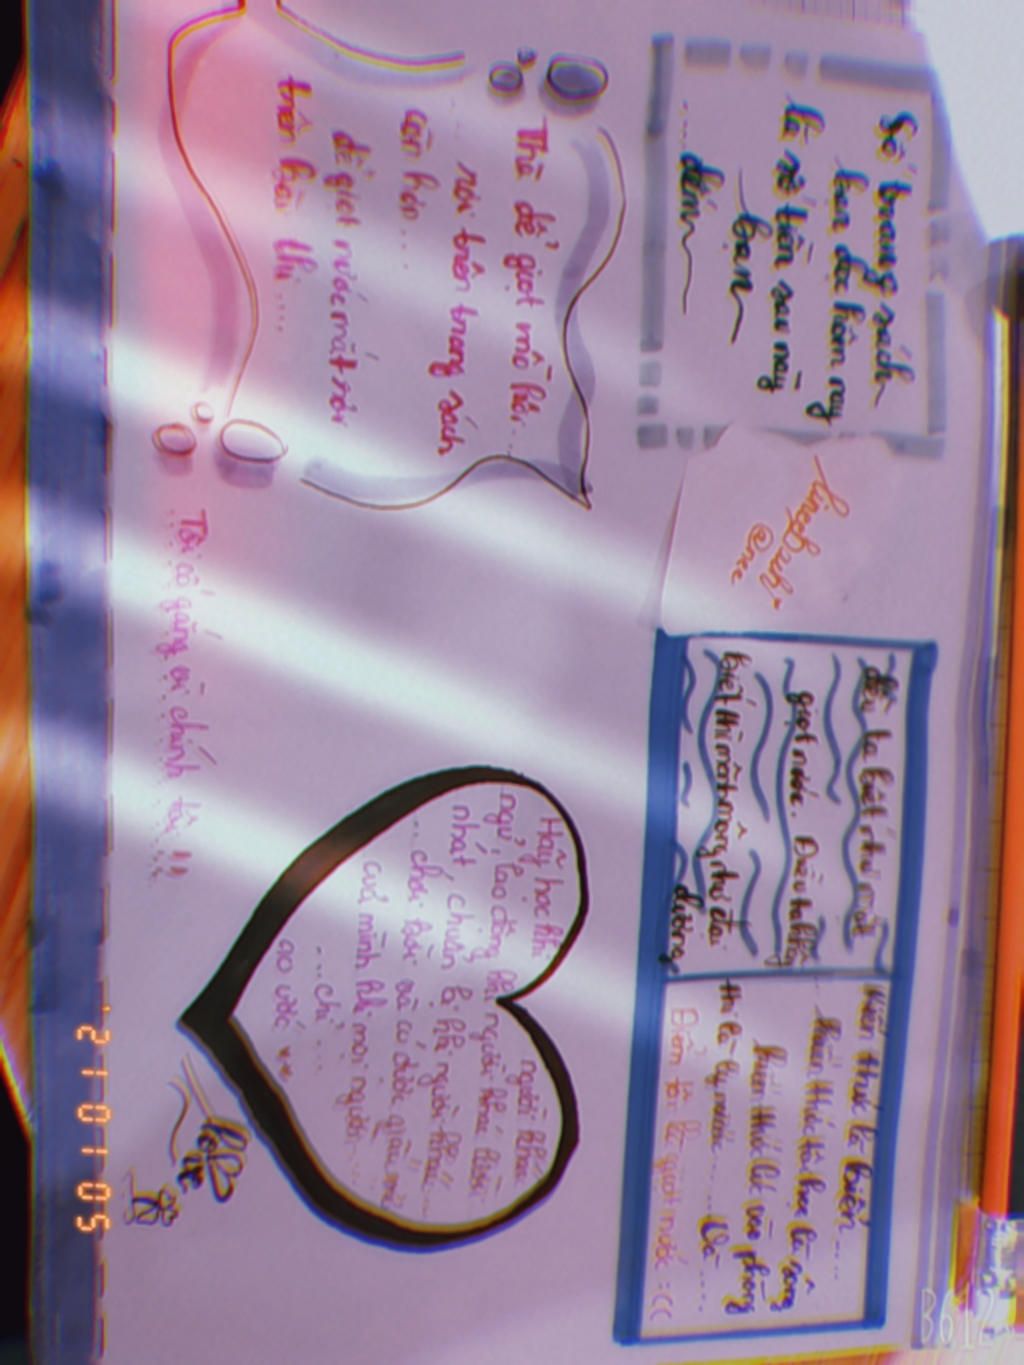 Số trang sách
bạn đọc hôm nay
là số tiền sau này
bạn
đếm
Thà để giọt mồ hôi...
rơi trên trang sách
còn hơn...
để giọt nước mắt rơi
trên bài thi....
Tôi cố gắng vì chính tôi !!
@nee
điều ta biết như một
giọt nước. Điều ta không
biết thì mênh mông như đại
dương
Kiến thức là biển....
kiến thức tới học là sông
kiến thức lúc vào phòng
thi là ly nước..... Và.....
Điểm luôn là giọt nước :((
Hãy học khi người khác
ngủ, lao động khi người khác lười
nhát, chuẩn bị khi người khác....
...chơi bời và có được giấc mơ
của mình khi mọi người...
...chỉ...
ao ước
love
21 01 05
B612